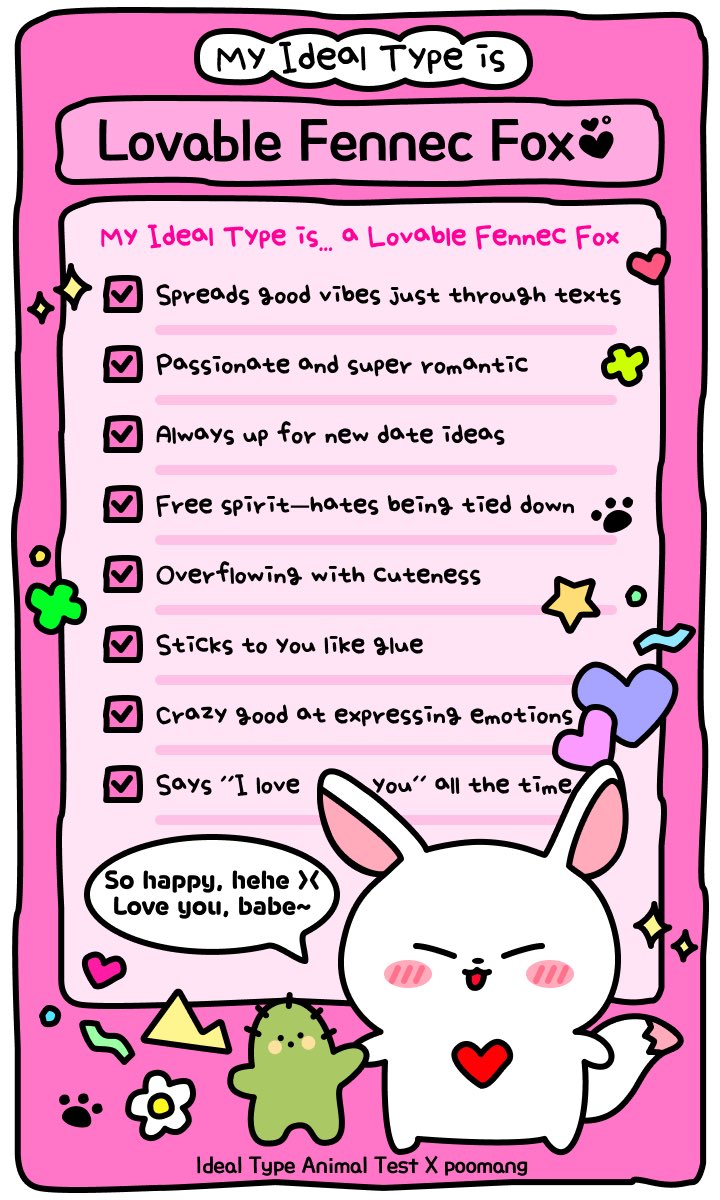 My Ideal Type is
Lovable Fennec Fox
My Ideal Type is... a Lovable Fennec Fox
Spreads good vibes just through texts
Passionate and super romantic
Always up for new date ideas
Free spirit—hates being tied down
Overflowing with cuteness
Sticks to you like glue
Crazy good at expressing emotions
Says "I love you" all the time
So happy, hehe ><
Love you, babe~
Ideal Type Animal Test X poomang